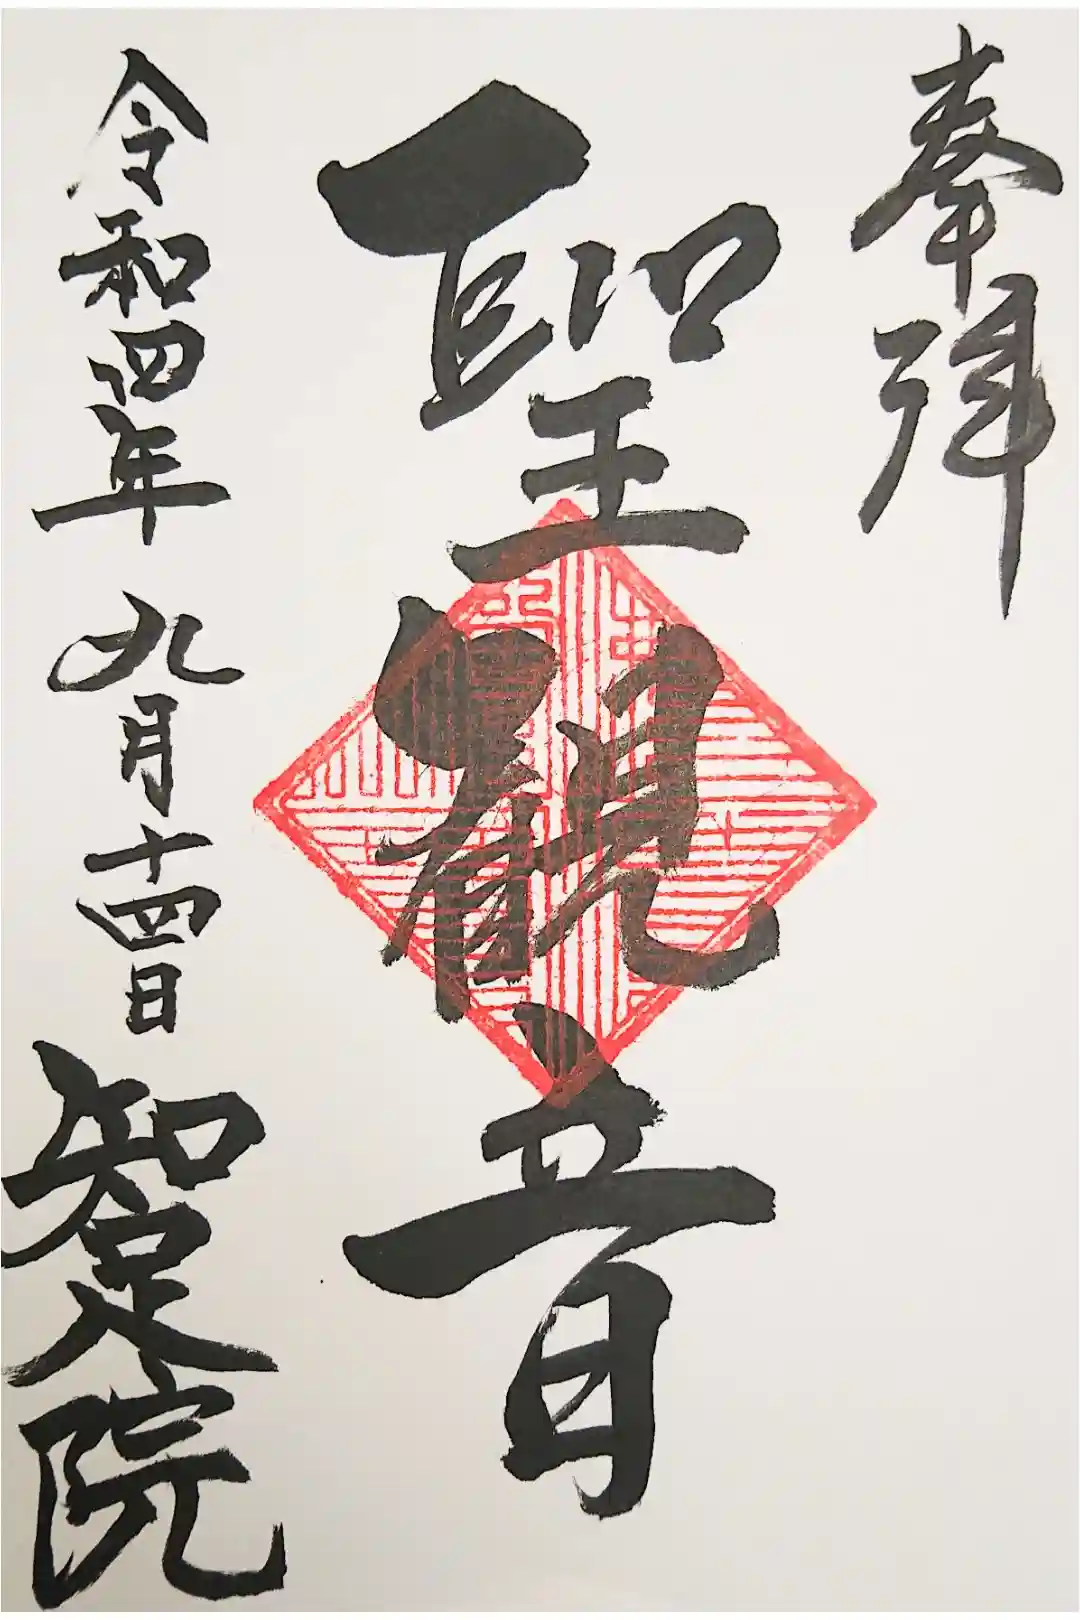 奉拝
聖觀音
令和四年 九月十四日 知足院